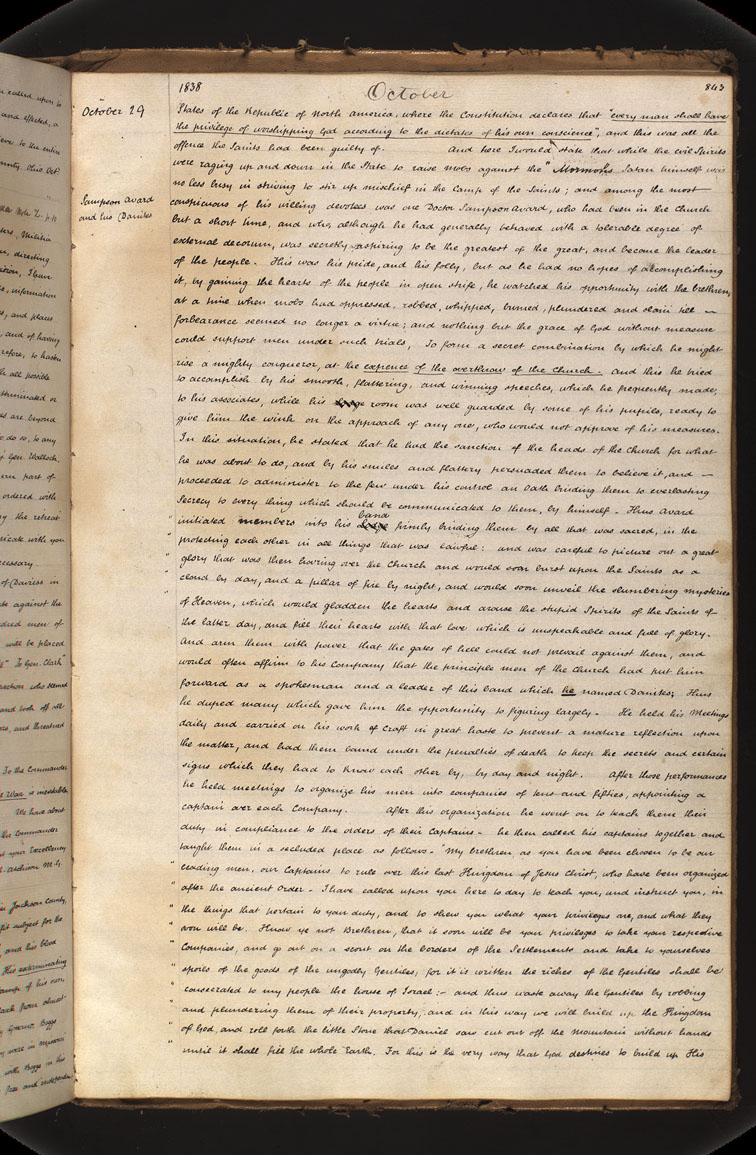 1838
October
843
October 29
States of the Republic of North America, where the Constitution declares that "every man shall have
the privilege of worshipping God according to the dictates of his own conscience", and this was all the
offence the Saints had been guilty of. And here I would state that while the evil Spirits
were raging up and down in the State to raise mobs against the "Mormons" Satan himself was
no less busy in striving to stir up mischief in the Camp of the Saints; and among the most
Sampson Avard
and his Danites
conspicuous of his willing devotees was one Doctor Sampson Avard, who had been in the Church
but a short time, and who, although he had generally behaved with a tolerable degree of
external decorum, was secretly aspiring to be the greatest of the great, and become the leader
of the people. This was his pride, and his folly, but as he had no hopes of accomplishing
it, by gaining the hearts of the people in open strife, he watched his opportunity with the brethren,
at a time when mobs had oppressed, robbed, whipped, burned, plundered and slain till —
forbearance seemed no longer a virtue; and nothing but the grace of God without measure
could support men under such trials, To form a secret combination by which he might
rise a mighty conqueror, at the expence of the overthrow of the Church. and this he tried
to accomplish by his smooth, flattering, and winning speeches, which he frequently made,
to his associates, while his room was well guarded by some of his pupils, ready to
give him the wink on the approach of any one, who would not approve of his measures.
In this situation, he stated that he had the sanction of the heads of the Church for what
he was about to do, and by his smiles and flattery persuaded them to believe it, and —
proceeded to administer to the few under his control an Oath binding them to everlasting
Secrecy to every thing which should be communicated to them, by himself. Thus Avard
initiated members into his band firmly binding them by all that was sacred, in the
" protecting each other in all things that was lawful: and was careful to picture out a great
" glory that was then hovering over the Church and would soon burst upon the Saints as a
" cloud by day, and a pillar of fire by night, and would soon unveil the slumbering mysteries
of Heaven, which would gladden the hearts and arouse the stupid Spirits of the Saints of
the latter day, and fill their hearts with that love which is unspeakable and full of glory.
And arm them with power that the gates of hell could not prevail against them, and
would often affirm to his Company that the principle men of the Church had put him
forward as a spokesman and a leader of this band which he named Danites; Thus
he duped many which gave him the opportunity to figuring largely. He held his Meetings
daily and carried on his work of craft in great haste to prevent a mature reflection upon
the matter, and had them bound under the penalties of death to keep the secrets and certain
signs which they had to know each other by, by day and night. After those performances
he held meetings to organize his men into companies of tens and fifties, appointing a
captain over each Company. After this organization he went on to teach them their
duty in compliance to the orders of their Captains - he then called his captains together and
taught them in a secluded place as follows - "My brethren, as you have been chosen to be our
" leading men, our Captains to rule over this last Kingdom of Jesus Christ, who have been organized
" after the ancient Order - I have called upon you here to day to teach you, and instruct you, in
" the things that pertain to your duty, and to shew you what your privileges are, and what they
" soon will be. Know ye not Brethren, that it soon will be your privileges to take your respective
" Companies, and go out on a scout on the borders of the Settlements and take to yourselves
" spoils of the goods of the ungodly Gentiles; for it is written the riches of the Gentiles shall be
" consecrated to my people the house of Israel:- and thus waste away the Gentiles by robbing
" and plundering them of their property; and in this way we will build up the Kingdom
" of God, and roll forth the little Stone that Daniel saw cut out off the Mountain without hands
" until it shall fill the whole Earth. For this is the very way that God destines to build up His